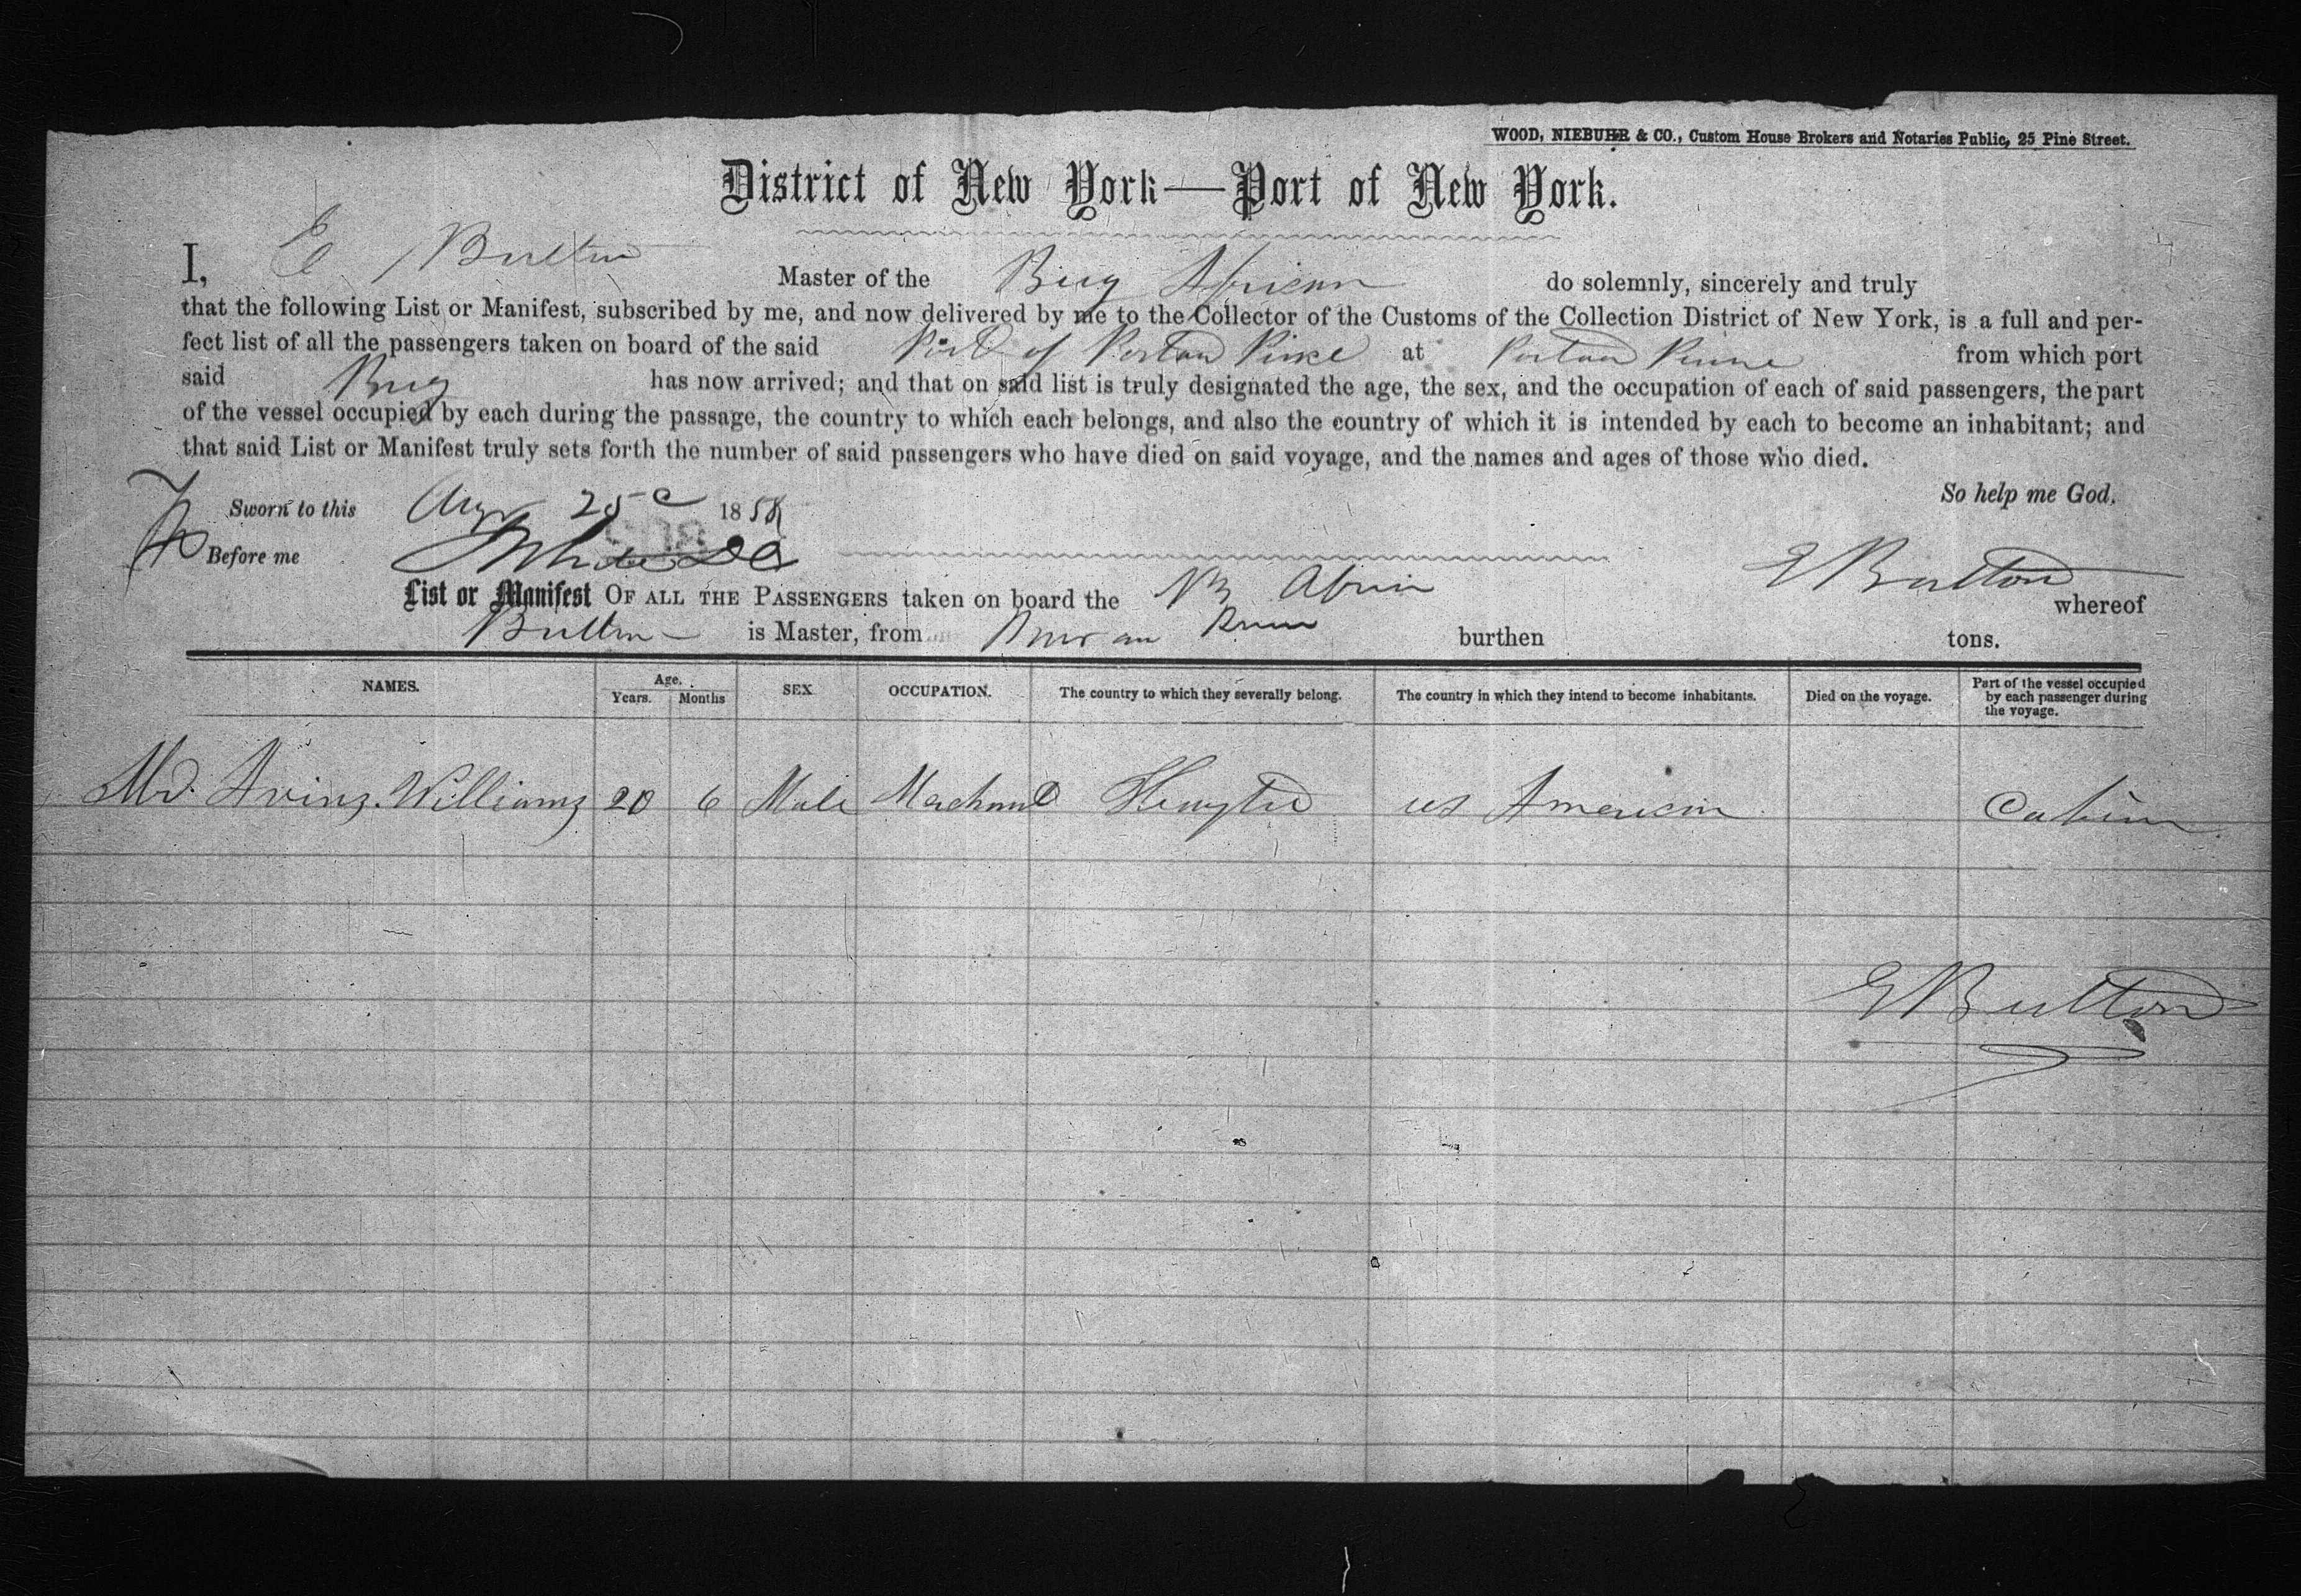 WOOD, NIEBUHR & CO., Custom House Brokers and Notaries Public, 25 Pine Street.
District of New York—Port of New York.
I, E Bulton Master of the Brig African do solemnly, sincerely and truly
that the following List or Manifest, subscribed by me, and now delivered by me to the Collector of the Customs of the Collection District of New York, is a full and per-
fect list of all the passengers taken on board of the said Port of at from which port
said Brig has now arrived; and that on said list is truly designated the age, the sex, and the occupation of each of said passengers, the part
of the vessel occupied by each during the passage, the country to which each belongs, and also the country of which it is intended by each to become an inhabitant; and
that said List or Manifest truly sets forth the number of said passengers who have died on said voyage, and the names and ages of those who died.
So help me God.
Sworn to this Aug 25 1858
Before me
E Bulton
List or Manifest OF ALL THE PASSENGERS taken on board the whereof
Bulton is Master, from burthen tons.
NAMES. Age. Years. Months SEX OCCUPATION. The country to which they severally belong. The country in which they intend to become inhabitants. Died on the voyage. Part of the vessel occupied by each passenger during the voyage.
Williams 20 6 Male us American Cabin
E Bulton